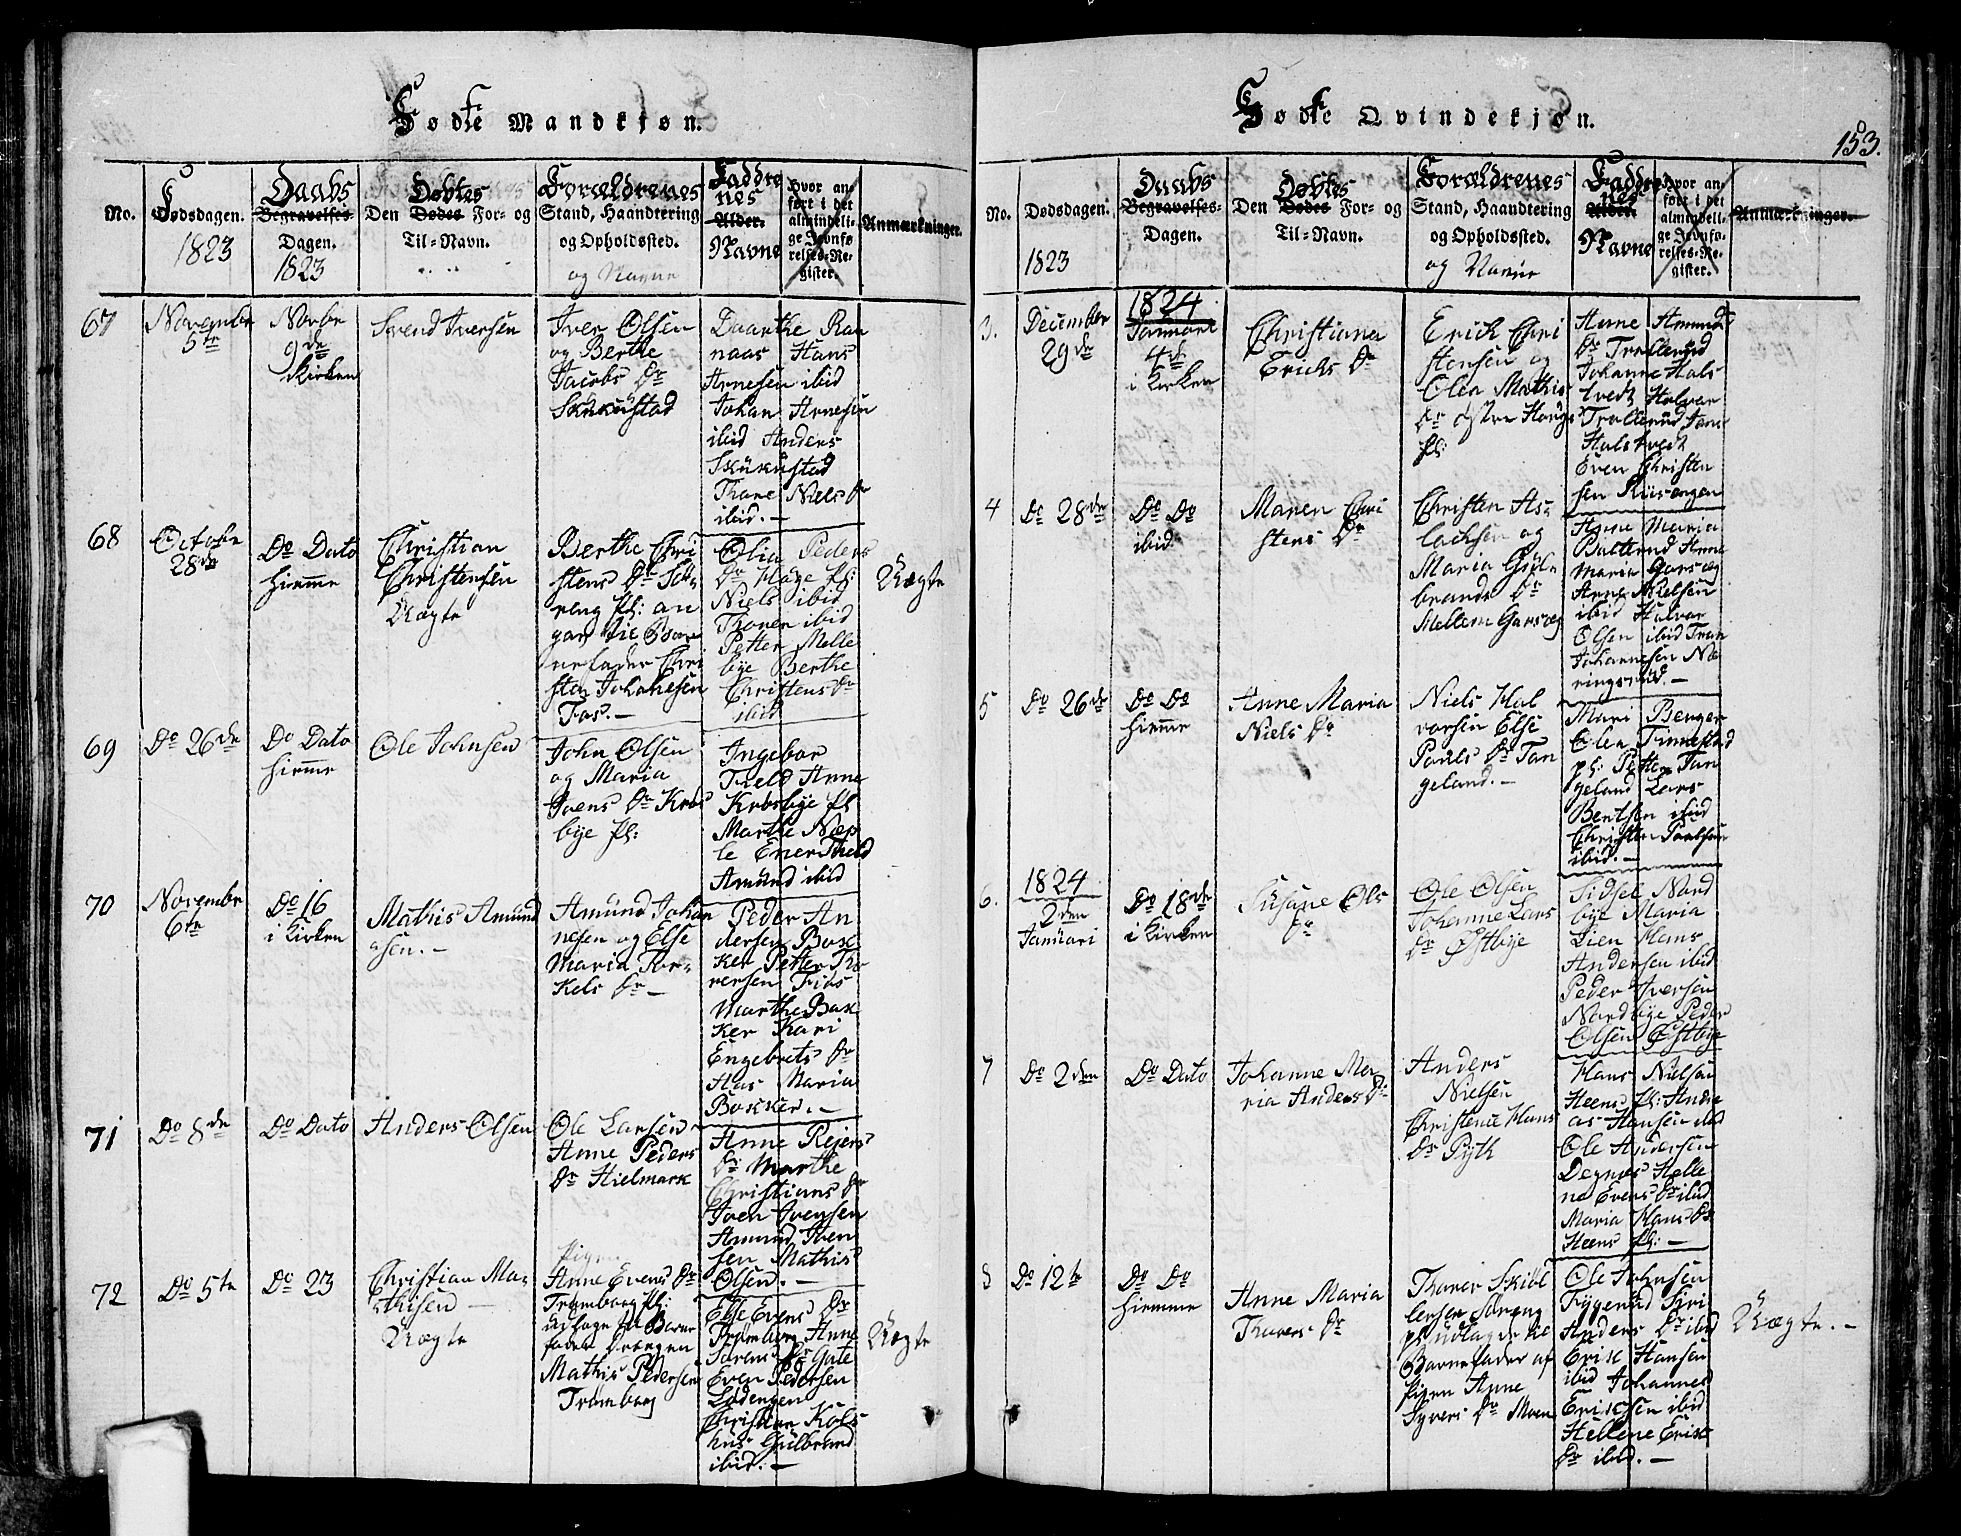 Fødte Mandkjøn.
No.
Fødsdagen.
1823
Daabs
Begravelses-
Dagen.
1823
Døbtes
Den Dødes For- og
Til-Navn.
Forældrenes
Stand, Haandtering
og Opholdssted.
og Navne
Faddre
nes
Alder.
Navne
Hvor an-
ført i det
almindeli-
ge Jevnfø
relses-Re-
gister.
Anmærkninger.
67
Novembr
5te
Novbr
9de
Kirken
Svend Iversen
Iver Olsen
og Berthe
Jacobs Dr
Skukustad
Daarthe Ran
naas Hans
Arnesen ibid
Johan Arnesen
ibid Anders
Skukustad
Thore Niels Dr
ibid. —
68
Octobr
28de
Do Dato
hiemme
Christian
Christensen
Uægte
Berthe Chri
stens Dr Sø-
reng pl: an
gav til Barn
nefader Chri
sten Johanesen
Fos. —
Olia Peders
Dr Hage pl:
Niels ibid
Thoren ibid
Petter Melle
bye Berthe
Christens Dr
ibid
Uægte
69
Do 26de
Do Dato
hiemme
Ole Johnsen
John Olsen
og Maria
Ivens Dr Kros
bye pl:
Ingebor
Field Anne
Krosbye pl
Marthe Næp
le Ener Field
Amund ibid
70
Novembr
6te
Do 16
i Kirken
Mathis Amund
sen. —
Amund Johan
nesen og Else
Maria Tor-
kels Dr —
Peder An
dersen Bak
ker Petter Tho
rersen Fribs
Marthe Bak
ker Kari
Engebrets Dr
Aas Maria
Bakker. —
71
Do 8de
Do Dato
Anders Olsen
Ole Larsen
Anne Peders
Dr Hielmark
Anne Rejers
Dr Marthe
Christians Dr
Iven Ivensen
Amund Iven
sen Mathis
Olsen. —
72
Do 5te
Do 23
Christian Ma-
thisen —
Uægte
Pigen
Anne Evens Dr
Tramborg pl:
udlagde til Barne
fader Drengen
Mathis Pedersen
Tramborg
Else Evens Dr
Tramborg Anne
Sørens Dr Gute
Even Pedersen
Lodengen
Christian Kols
hus Gulbrand
ibid. —
Uægte
Fødte Qvindekjøn.
153.
No.
Dødsdagen.
1823
Daabs
Begravelses-
Dagen.
Døbtes
Den Dødes For- og
Til-Navn.
Forældrenes
Stand, Haandtering
og Opholdssted.
og Navne
Faddre
nes
Alder.
Navne
Hvor an-
ført i det
almindeli-
ge Jevnfø-
relses-Re-
gister.
Anmærkninger.
3.
December
29de
1824
Januari
4de
i Kirken
Christiana
Ericks Dr
Erick Chri
stensen og
Olea Mathis
Dr østre Haugs
pl:
Anne Amund
Dr Trollerud
Johanne Hals
tvedt Halvar
Trollerud Jens
Halstvedt
Even Christen
sen Riisengen
4
Do 28de
Do Do
ibid
Maren Chri
stens Dr
Christen As-
lachsen og
Maria Gul-
brands Dr
Mellem Garseg
Anne Maria
Batterud Anne
Maria Garseg
Arne Nielsen
ibid Halvar
Olsen ibid Tran
Johannesen Næ
ringsrud. —
5
Do 26de
Do Do
hiemme
Anne Maria
Niels Dr
Niels Hal
varsen Else
Pauls Dr Tan
geland. —
Mari Benger
Olea Finnestad
pl: Petter Tan
geland Lars
Bentsen ibid
Christen Paulsen
ibid. —
6.
1824
2den
Januari
Do 18de
i Kirken
Susane Ols
Dr
Ole Olsen
Johanne Lars
Dr Østbye
Sidsel Nord
bye Maria
Lien Hans
Andersen ibid
Peder Iversen
Nordbye Peder
Olsen Østbye
7
Do 2den
Do Dato
Johanne Ma-
ria Anders Dr
Anders
Nielsen
Christence Hans
Dr Pyth
Hans Nielsen
Heens pl: Andre
as Hansen ibid
Ole Andersen
Degnæs Helle
ne Evens Dr ibid
Maria Hans Dr
Heens pl: —
8
Do 12te
Do Do
hiemme
Anne Maria
Thorers Dr
Thorer Skibl
lersen Søreng
pl: udlagde til
Barnefader af
Pigen Anne
Syvers Dr Moen
Ole Johnsen
Fygerud Siri
Anders Dr ibid
Erik Hansen
ibid Johannes
Eriksen ibid
Hellene Erics
Dr ibid. —
Uægte. —